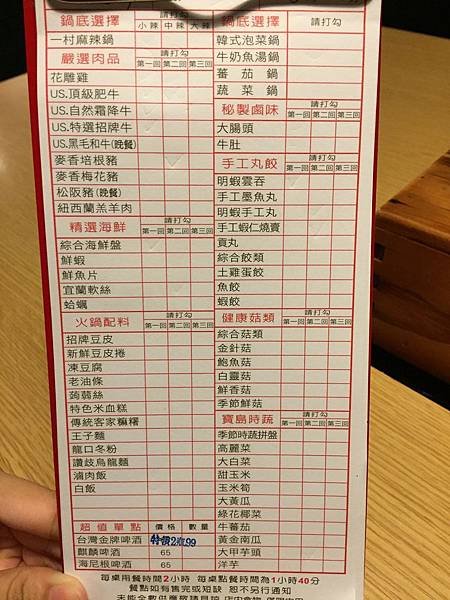 鍋底選擇 請打勾
小辣 中辣 大辣
一村麻辣鍋
嚴選肉品 請打勾
第一回 第二回 第三回
花雕雞
US.頂級肥牛
US.自然霜降牛
US.特選招牌牛
US.黑毛和牛(晚餐)
麥香培根豬
麥香梅花豬
松阪豬(晚餐)
紐西蘭羔羊肉
精選海鮮 請打勾
第一回 第二回 第三回
綜合海鮮盤
鮮蝦
鮮魚片
宜蘭軟絲
蛤蠣
火鍋配料 請打勾
第一回 第二回 第三回
招牌豆皮
新鮮豆皮捲
凍豆腐
老油條
蒟蒻絲
特色米血糕
傳統客家粄糬
王子麵
龍口冬粉
讚歧烏龍麵
滷肉飯
白飯
超值單點 價格 數量
台灣金牌啤酒 特價2瓶99
麒麟啤酒 65
海尼根啤酒 65
鍋底選擇 請打勾
韓式泡菜鍋
牛奶魚湯鍋
蕃茄鍋
蔬菜鍋
秘製鹵味 請打勾
第一回 第二回 第三回
大腸頭
牛肚
手工丸餃 請打勾
第一回 第二回 第三回
明蝦雲吞
手工墨魚丸
明蝦手工丸
手工蝦仁燒賣
貢丸
綜合餃類
土雞蛋餃
魚餃
蝦餃
健康菇類 請打勾
第一回 第二回 第三回
綜合菇類
金針菇
鮑魚菇
白靈菇
鮮香菇
季節鮮菇
寶島時蔬 請打勾
第一回 第二回 第三回
季節時蔬拼盤
高麗菜
大白菜
甜玉米
玉米筍
大黃瓜
綠花椰菜
牛蕃茄
黃金南瓜
大甲芋頭
洋芋
每桌用餐時間2小時 每桌點餐時間為1小時40分
餐點如有售完或短缺 恕不另行通知